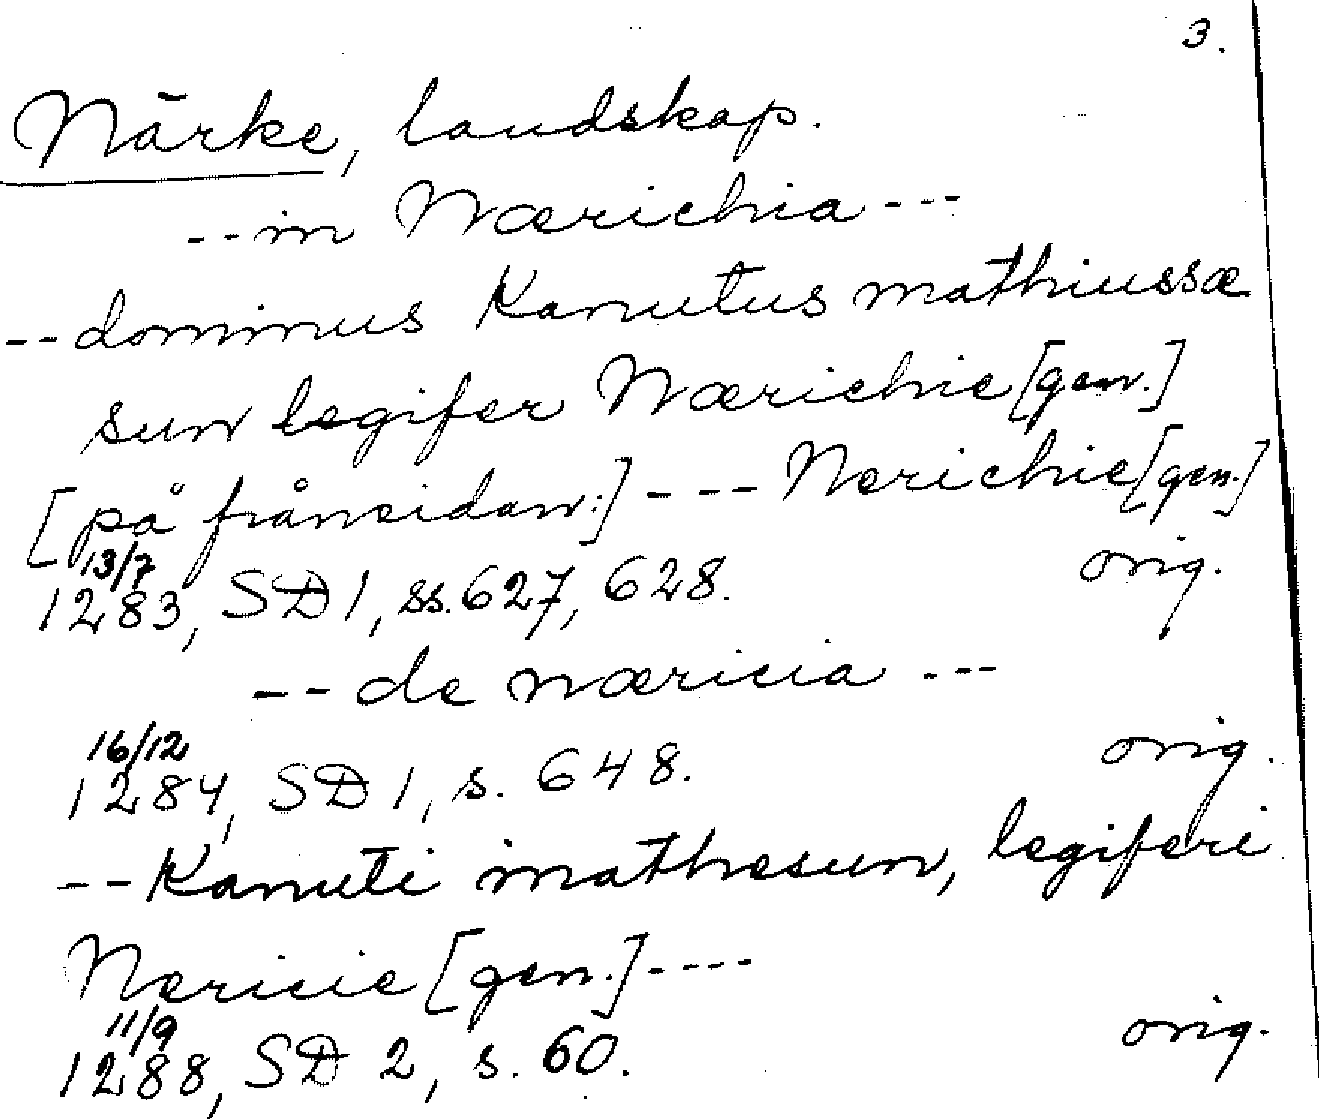 3.
Närke, landskap.
--in Nærichia---
--dominus Kanutus mathiussæ
sun legifer Nærichie [gen.]
[på frånsidan:] --- Nerichie [gen.]
13/7 orig.
1283, SD 1, ss. 627, 628.
--de næricia ---
16/12 orig.
1284, SD 1, s. 648.
--Kanuti mathesun, legiferi
Nericie [gen.]----
11/9 orig.
1288, SD 2, s. 60.